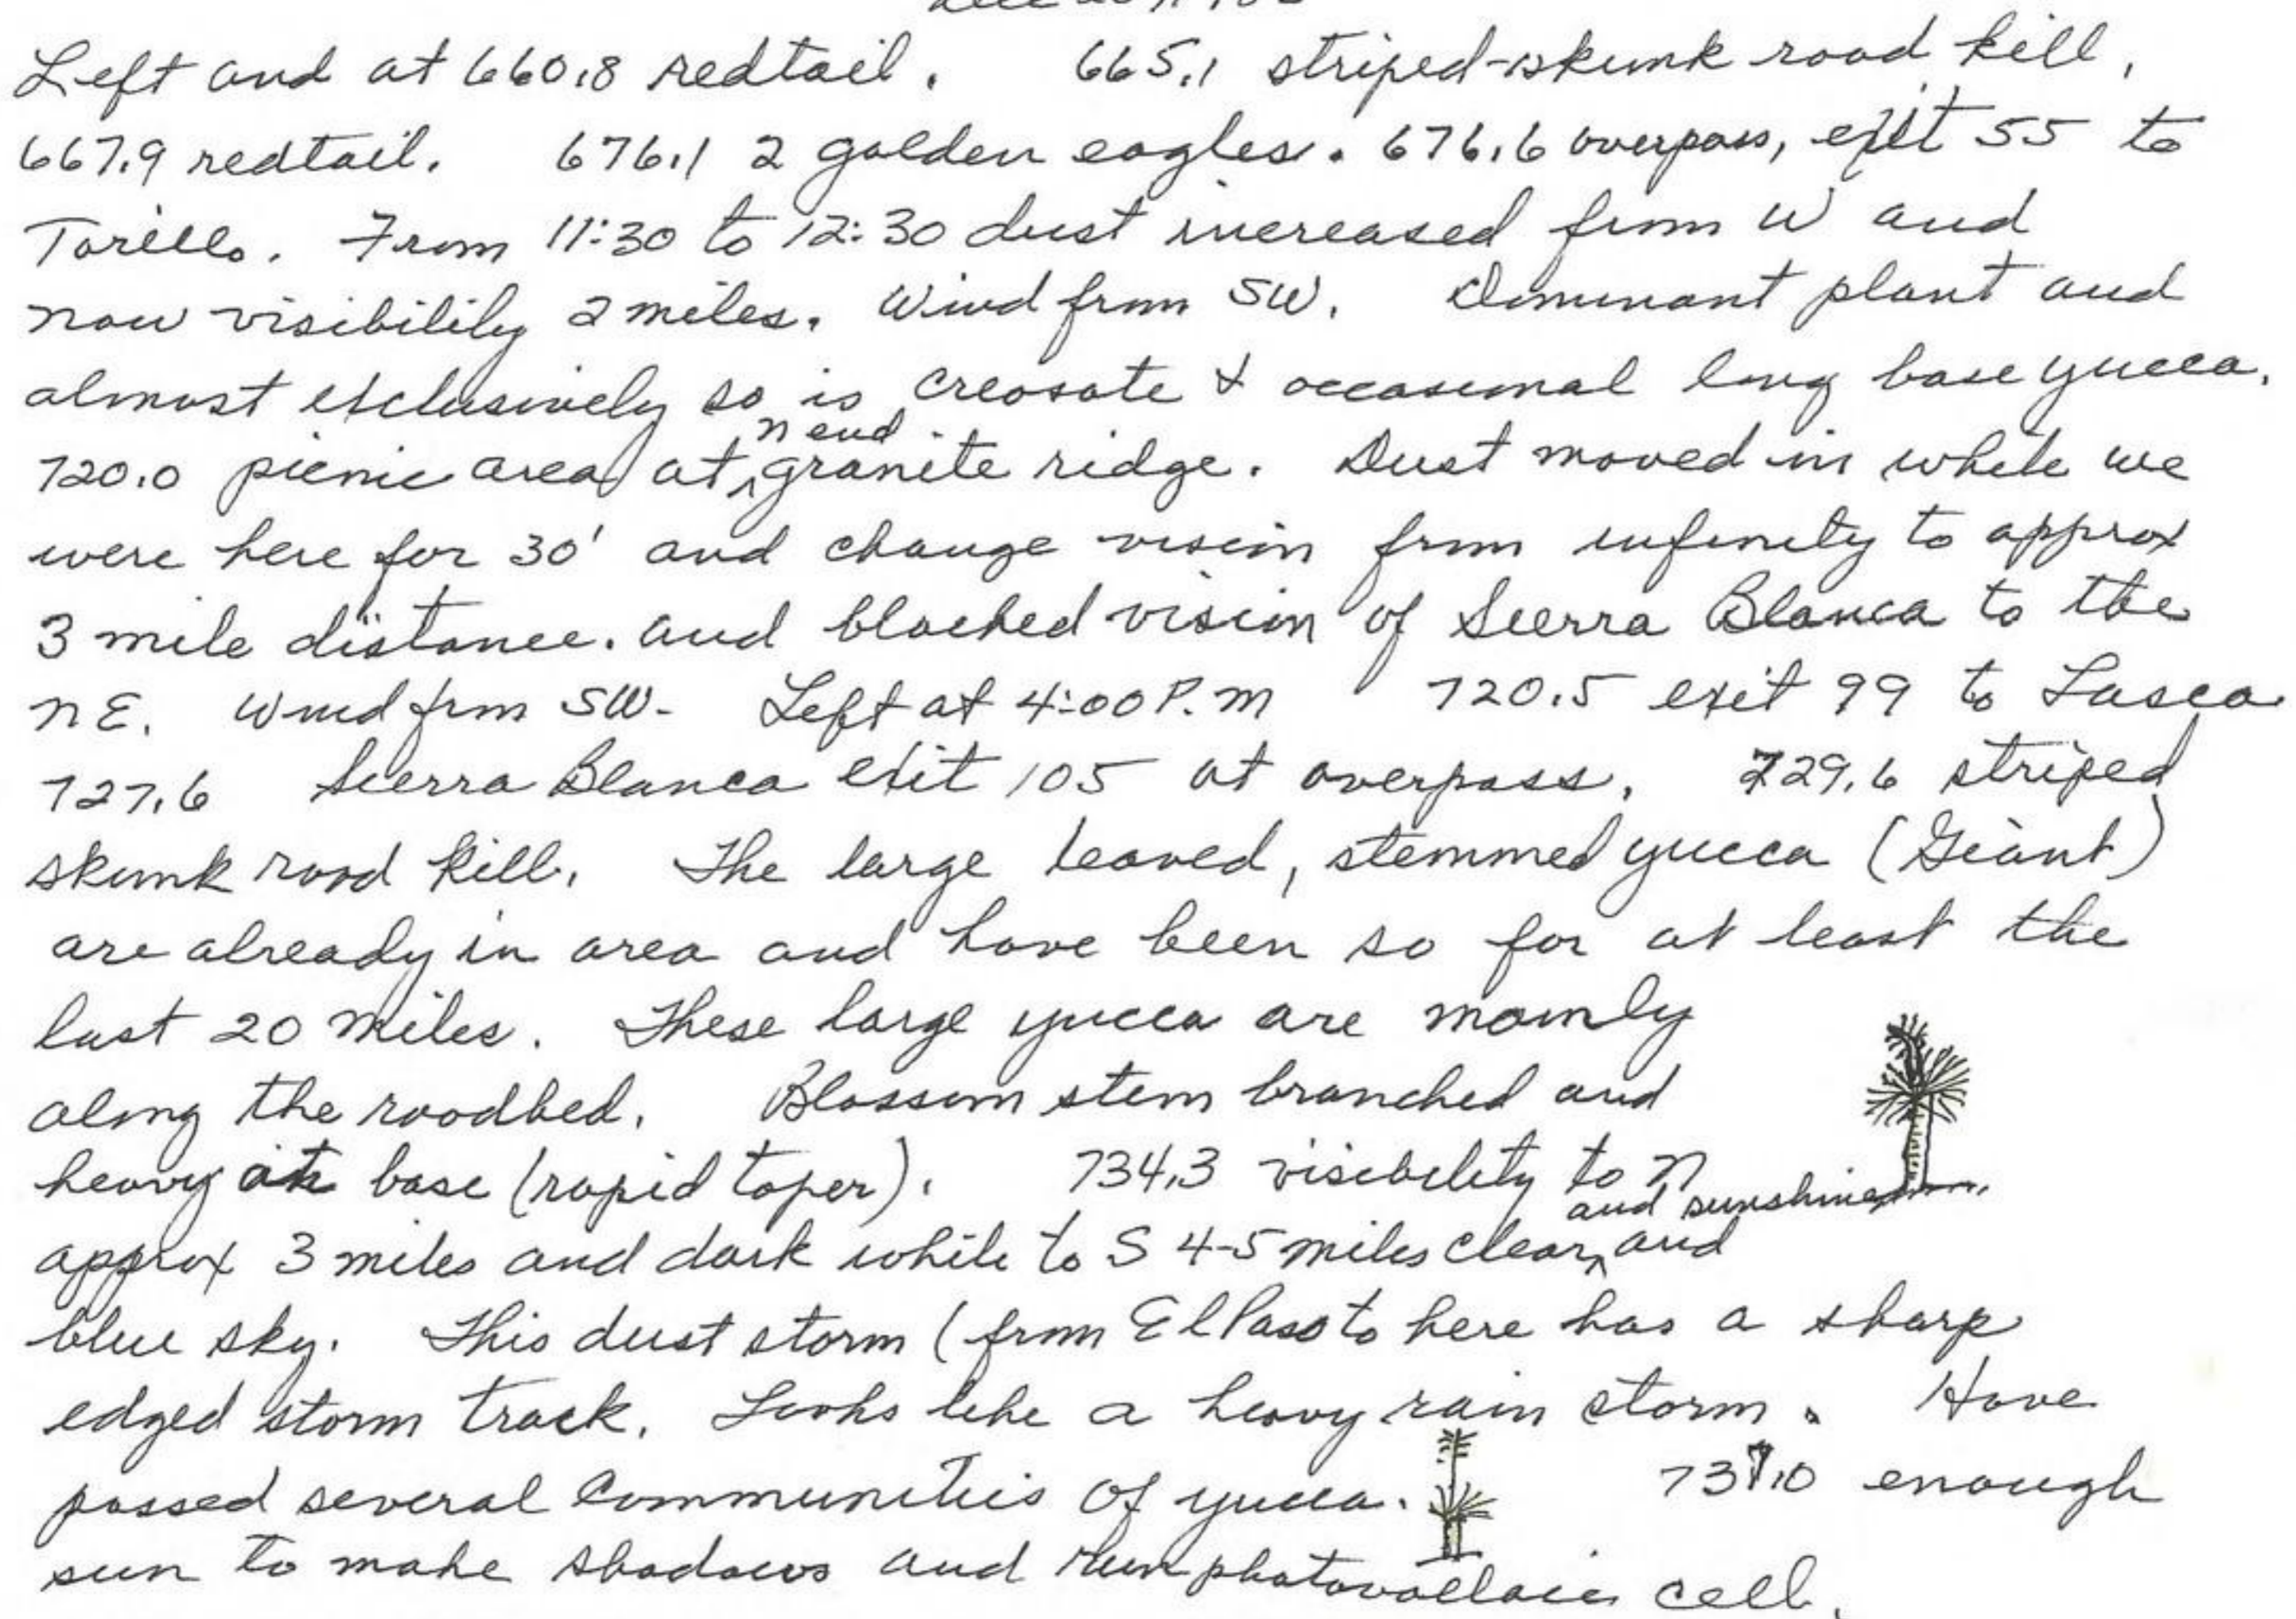 Left and at 660.8 redtail. 665.1 striped-skunk road kill.
667.9 redtail. 676.1 2 golden eagles. 676.6 overpass, exit 55 to
Torillo. From 11:30 to 12:30 dust increased from W and
now visibility 2 miles. Wind from SW. Dominant plant and
almost exclusively so is creosote & occasional long base yucca.
n end
720.0 picnic area at ^ granite ridge. Dust moved in while we
were here for 30' and change vision from infinity to approx
3 mile distance. and blocked vision of Sierra Blanca to the
NE. Wind from SW. Left at 4:00 P.M 720.5 exit 99 to Lasca
727.6 Sierra Blanca exit 105 at overpass. 729.6 striped
skunk road kill. The large leaved, stemmed yucca (Giant)
are already in area and have been so for at least the
last 20 miles. These large yucca are mainly
along the roadbed. Blossom stem branched and
heavy at base (rapid taper). 734.3 visibility to N
and sunshine
approx 3 miles and dark while to S 4-5 miles clear ^ and
blue sky. This dust storm (from El Paso to here has a sharp
edged storm track. Looks like a heavy rain storm. Have
passed several communities of yucca. enough
sun to make shadows and run photovoltaic cell.